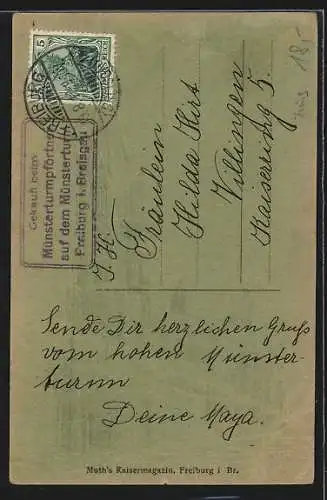 18.-
5
Gekauft beim
Münsterturmpförtner
auf dem Münsterturm
Freiburg i. Breisgau
I. H.
Fräulein
Hilda Hirt
Villingen
Kaiserring 5.
Sende Dir herzlichen Gruß
vom hohen Münster-
turm
Deine Maya.
Muth's Kaisermagazin, Freiburg i Br.